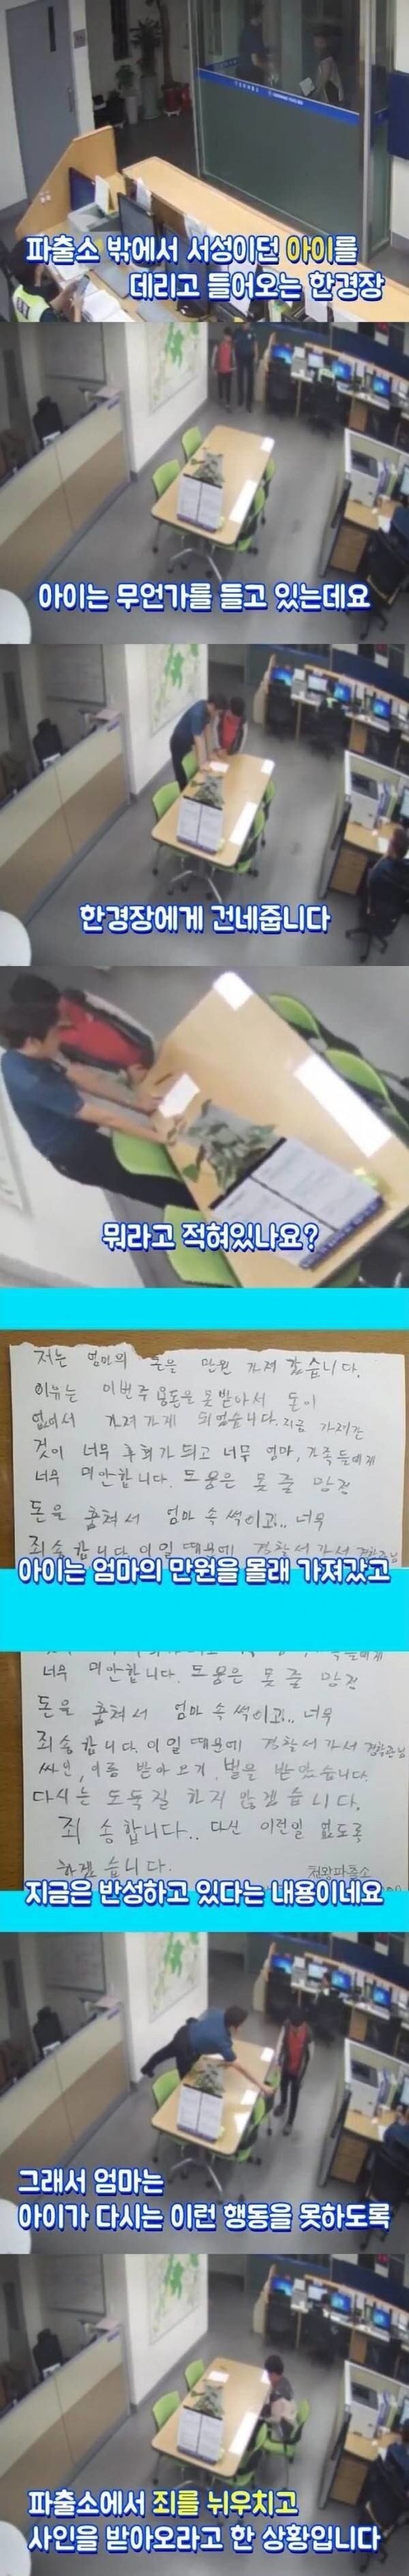 파출소 밖에서 서성이던 아이를
데리고 들어오는 한경장
아이는 무언가를 들고 있는데요
한경장에게 건네줍니다
뭐라고 적혀있나요?
저는 엄마의 돈을 만원 가져 갔습니다.
이유는 이번주 용돈을 못 받아서 돈이
없어서 가져가게 되었습니다. 지금 가져간
것이 너무 후회가 되고 너무 엄마, 가족들에게
너무 미안합니다. 도움은 못 줄 망정
돈을 훔쳐서 엄마 속 썩이고.. 너무
죄송합니다. 이일 때문에 경찰서 가서 경찰관님
아이는 엄마의 만원을 몰래 가져갔고
너무 미안합니다. 도움은 못 줄 망정
돈을 훔쳐서 엄마 속 썩이고.. 너무
죄송합니다. 이일 때문에 경찰서 가서 경찰관님
싸인, 이름 받아오기 벌을 받았습니다.
다시는 도둑질 하지 않겠습니다.
죄송합니다.. 다신 이런일 없도록
하겠습니다.
천왕파출소
지금은 반성하고 있다는 내용이네요
그래서 엄마는
아이가 다시는 이런 행동을 못하도록
파출소에서 죄를 뉘우치고
사인을 받아오라고 한 상황입니다